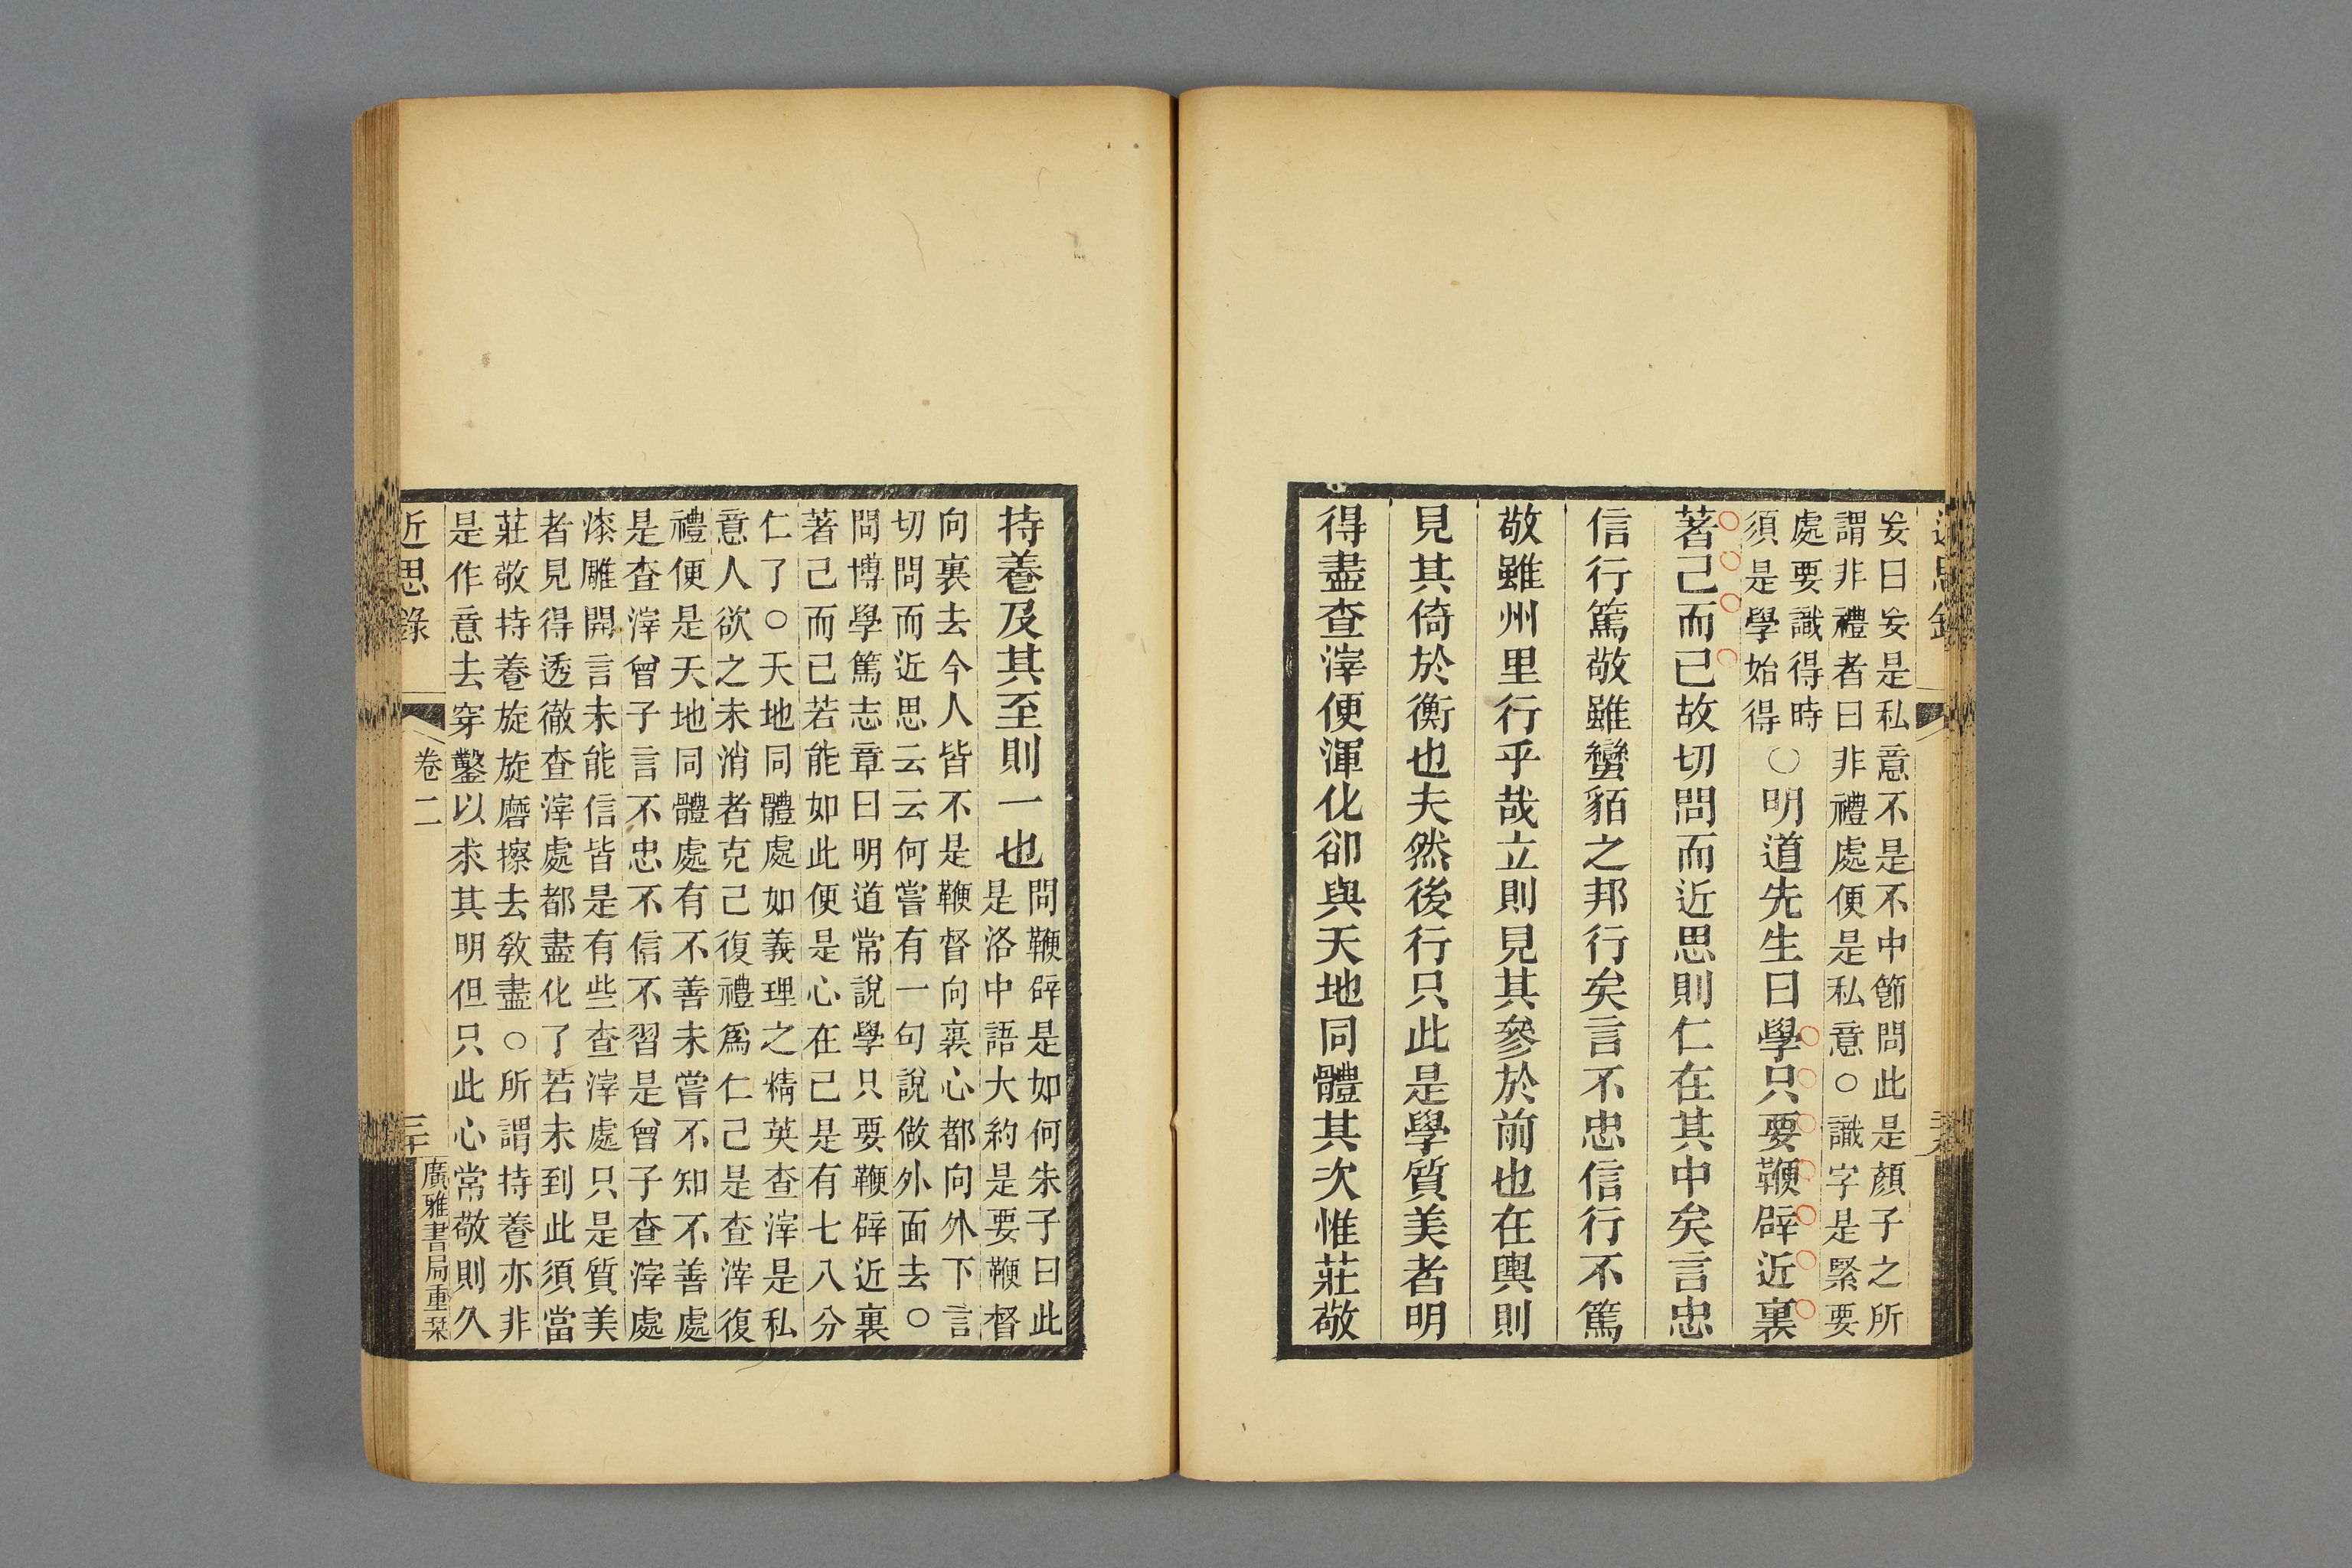 妄曰妄是私意不是不中節問此是顏子之所
謂非禮者曰非禮處便是私意○識字是緊要
處要識得時
須是學始得
○明道先生曰學只要鞭辟近裏
著己而已故切問而近思則仁在其中矣言忠
信行篤敬雖蠻貊之邦行矣言不忠信行不篤
敬雖州里行乎哉立則見其參於前也在輿則
見其倚於衡也夫然後行只此是學質美者明
得盡查滓便渾化卻與天地同體其次惟莊敬
持養及其至則一也
問鞭辟是如何朱子曰此
是洛中語大約是要鞭督
向裏去今人皆不是鞭督向裏心都向外下言
切問而近思云云何嘗有一句說做外面去○
問博學篤志章曰明道常說學只要鞭辟近裏
著己而已若能如此便是心在己是有七八分
仁了○天地同體處如義理之精英查滓是私
意人欲之未消者克己復禮爲仁己是查滓復
禮便是天地同體處有不善未嘗不知不善處
是查滓曾子言不忠不信不習是曾子查滓處
漆雕開言未能信皆是有些查滓處只是質美
者見得透徹查滓處都盡化了若未到此須當
莊敬持養旋旋磨擦去敎盡○所謂持養亦非
是作意去穿鑿以求其明但只此心常敬則久
近思錄
卷二
廣雅書局重栞